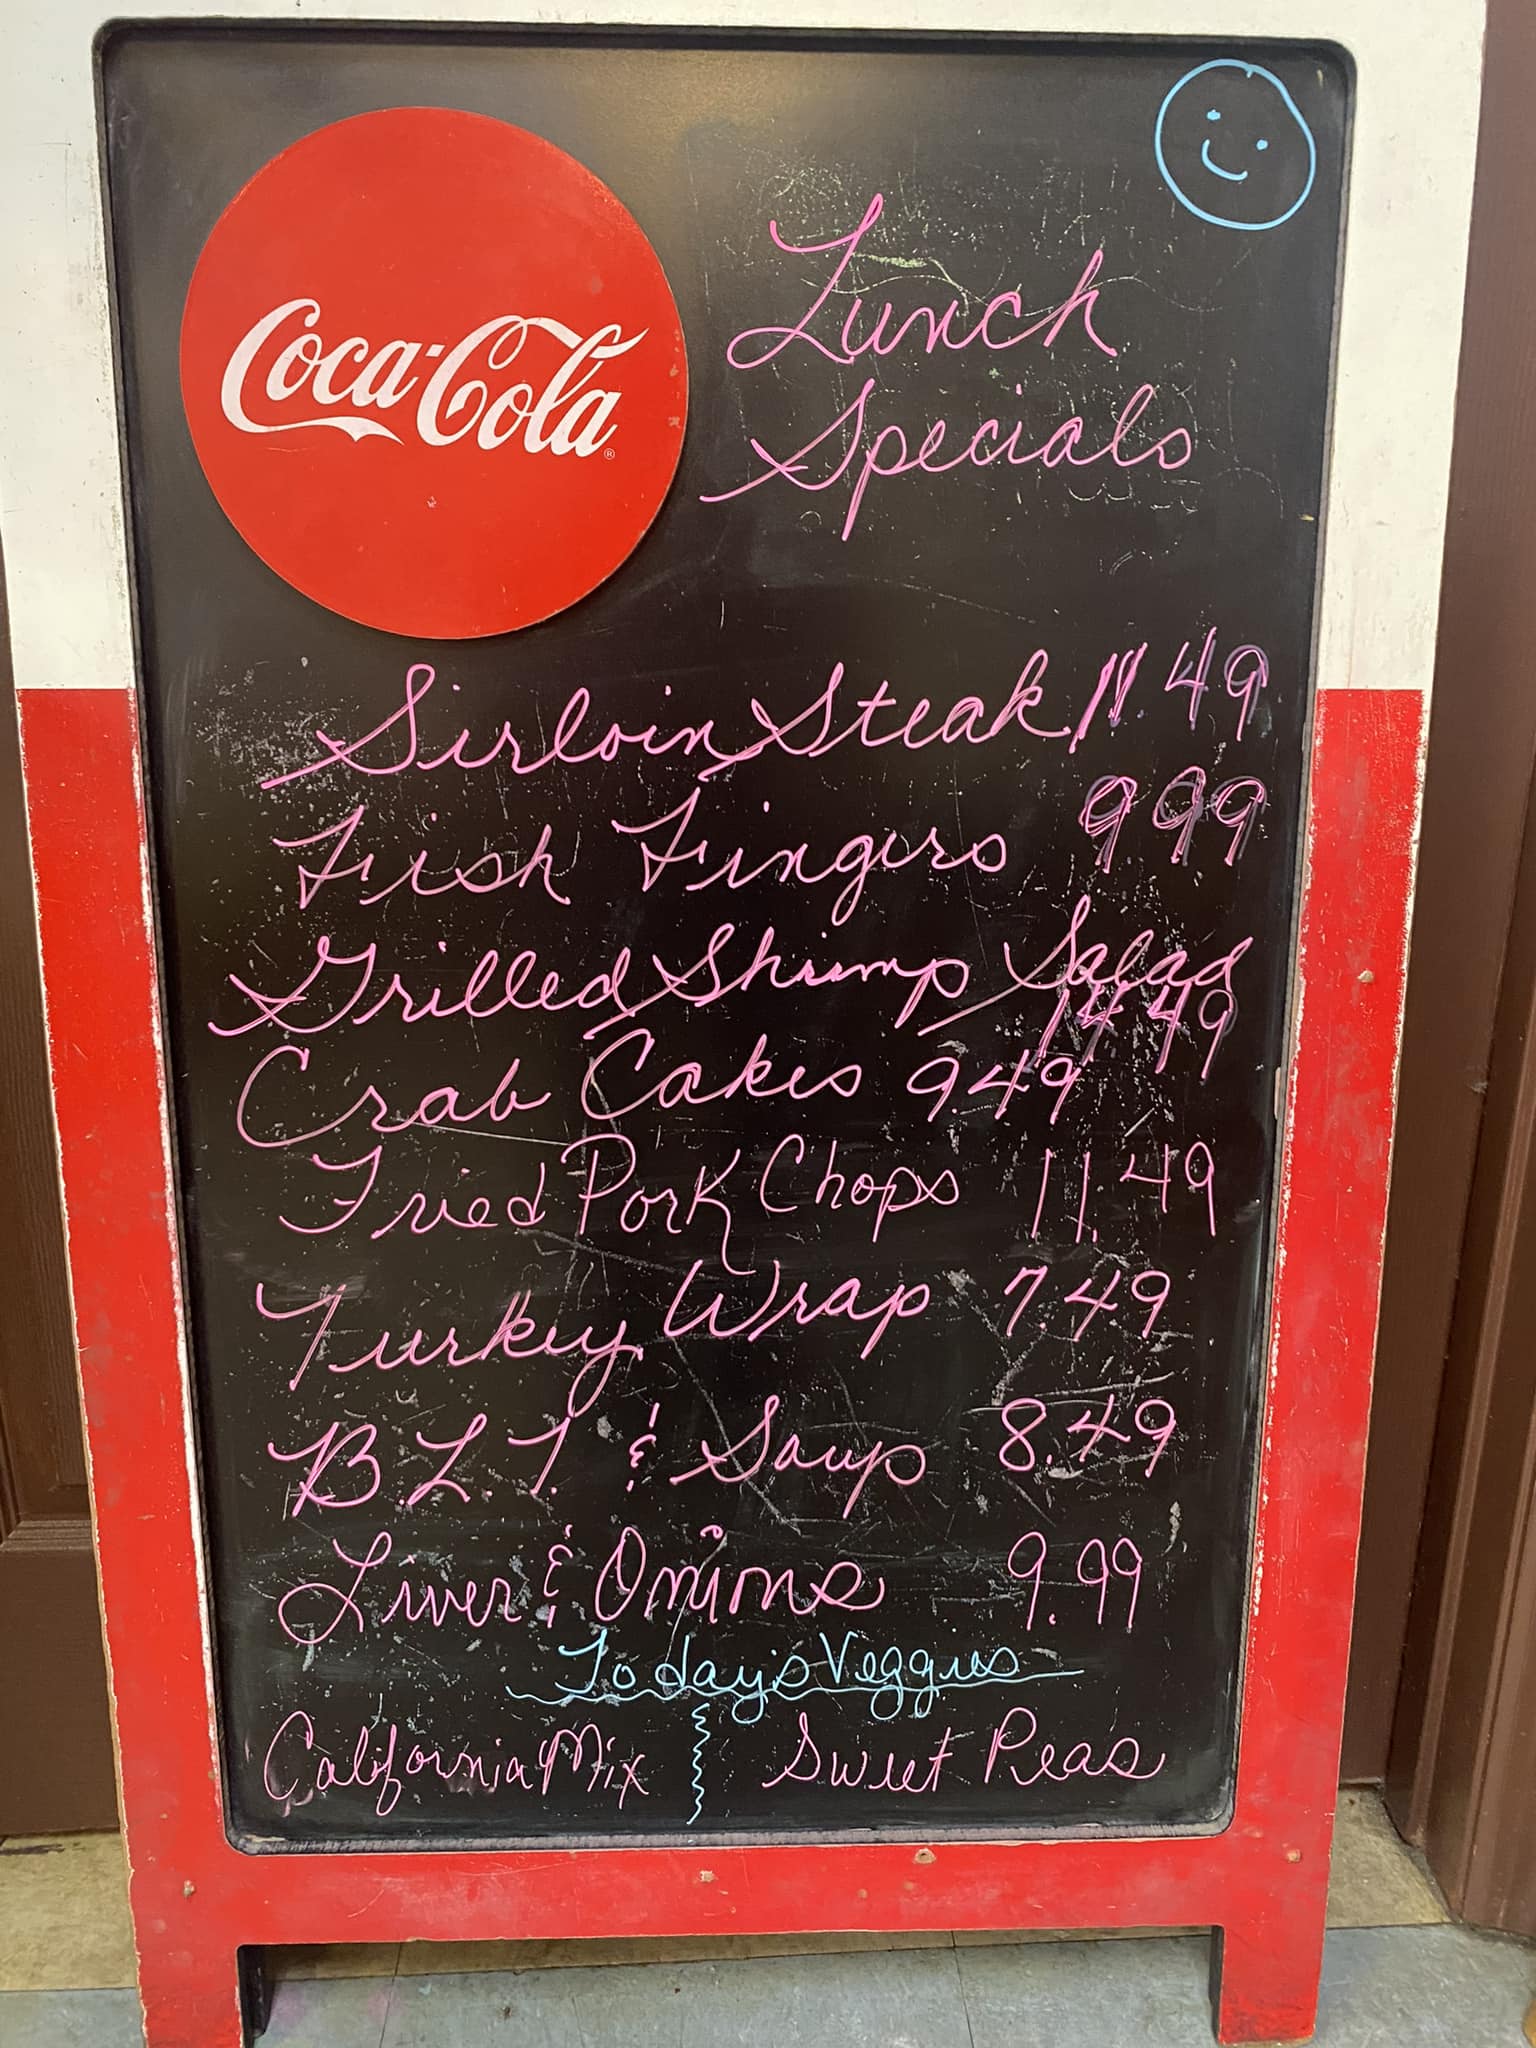 Coca-Cola®
Lunch
Specials
Sirloin Steak 11.49
Fish Fingers 9.99
Grilled Shrimp Salad
14.49
Crab Cakes 9.49
Fried Pork Chops 11.49
Turkey Wrap 7.49
B.L.T. & Soup 8.49
Liver & Onions 9.99
Today's Veggies
California Mix Sweet Peas